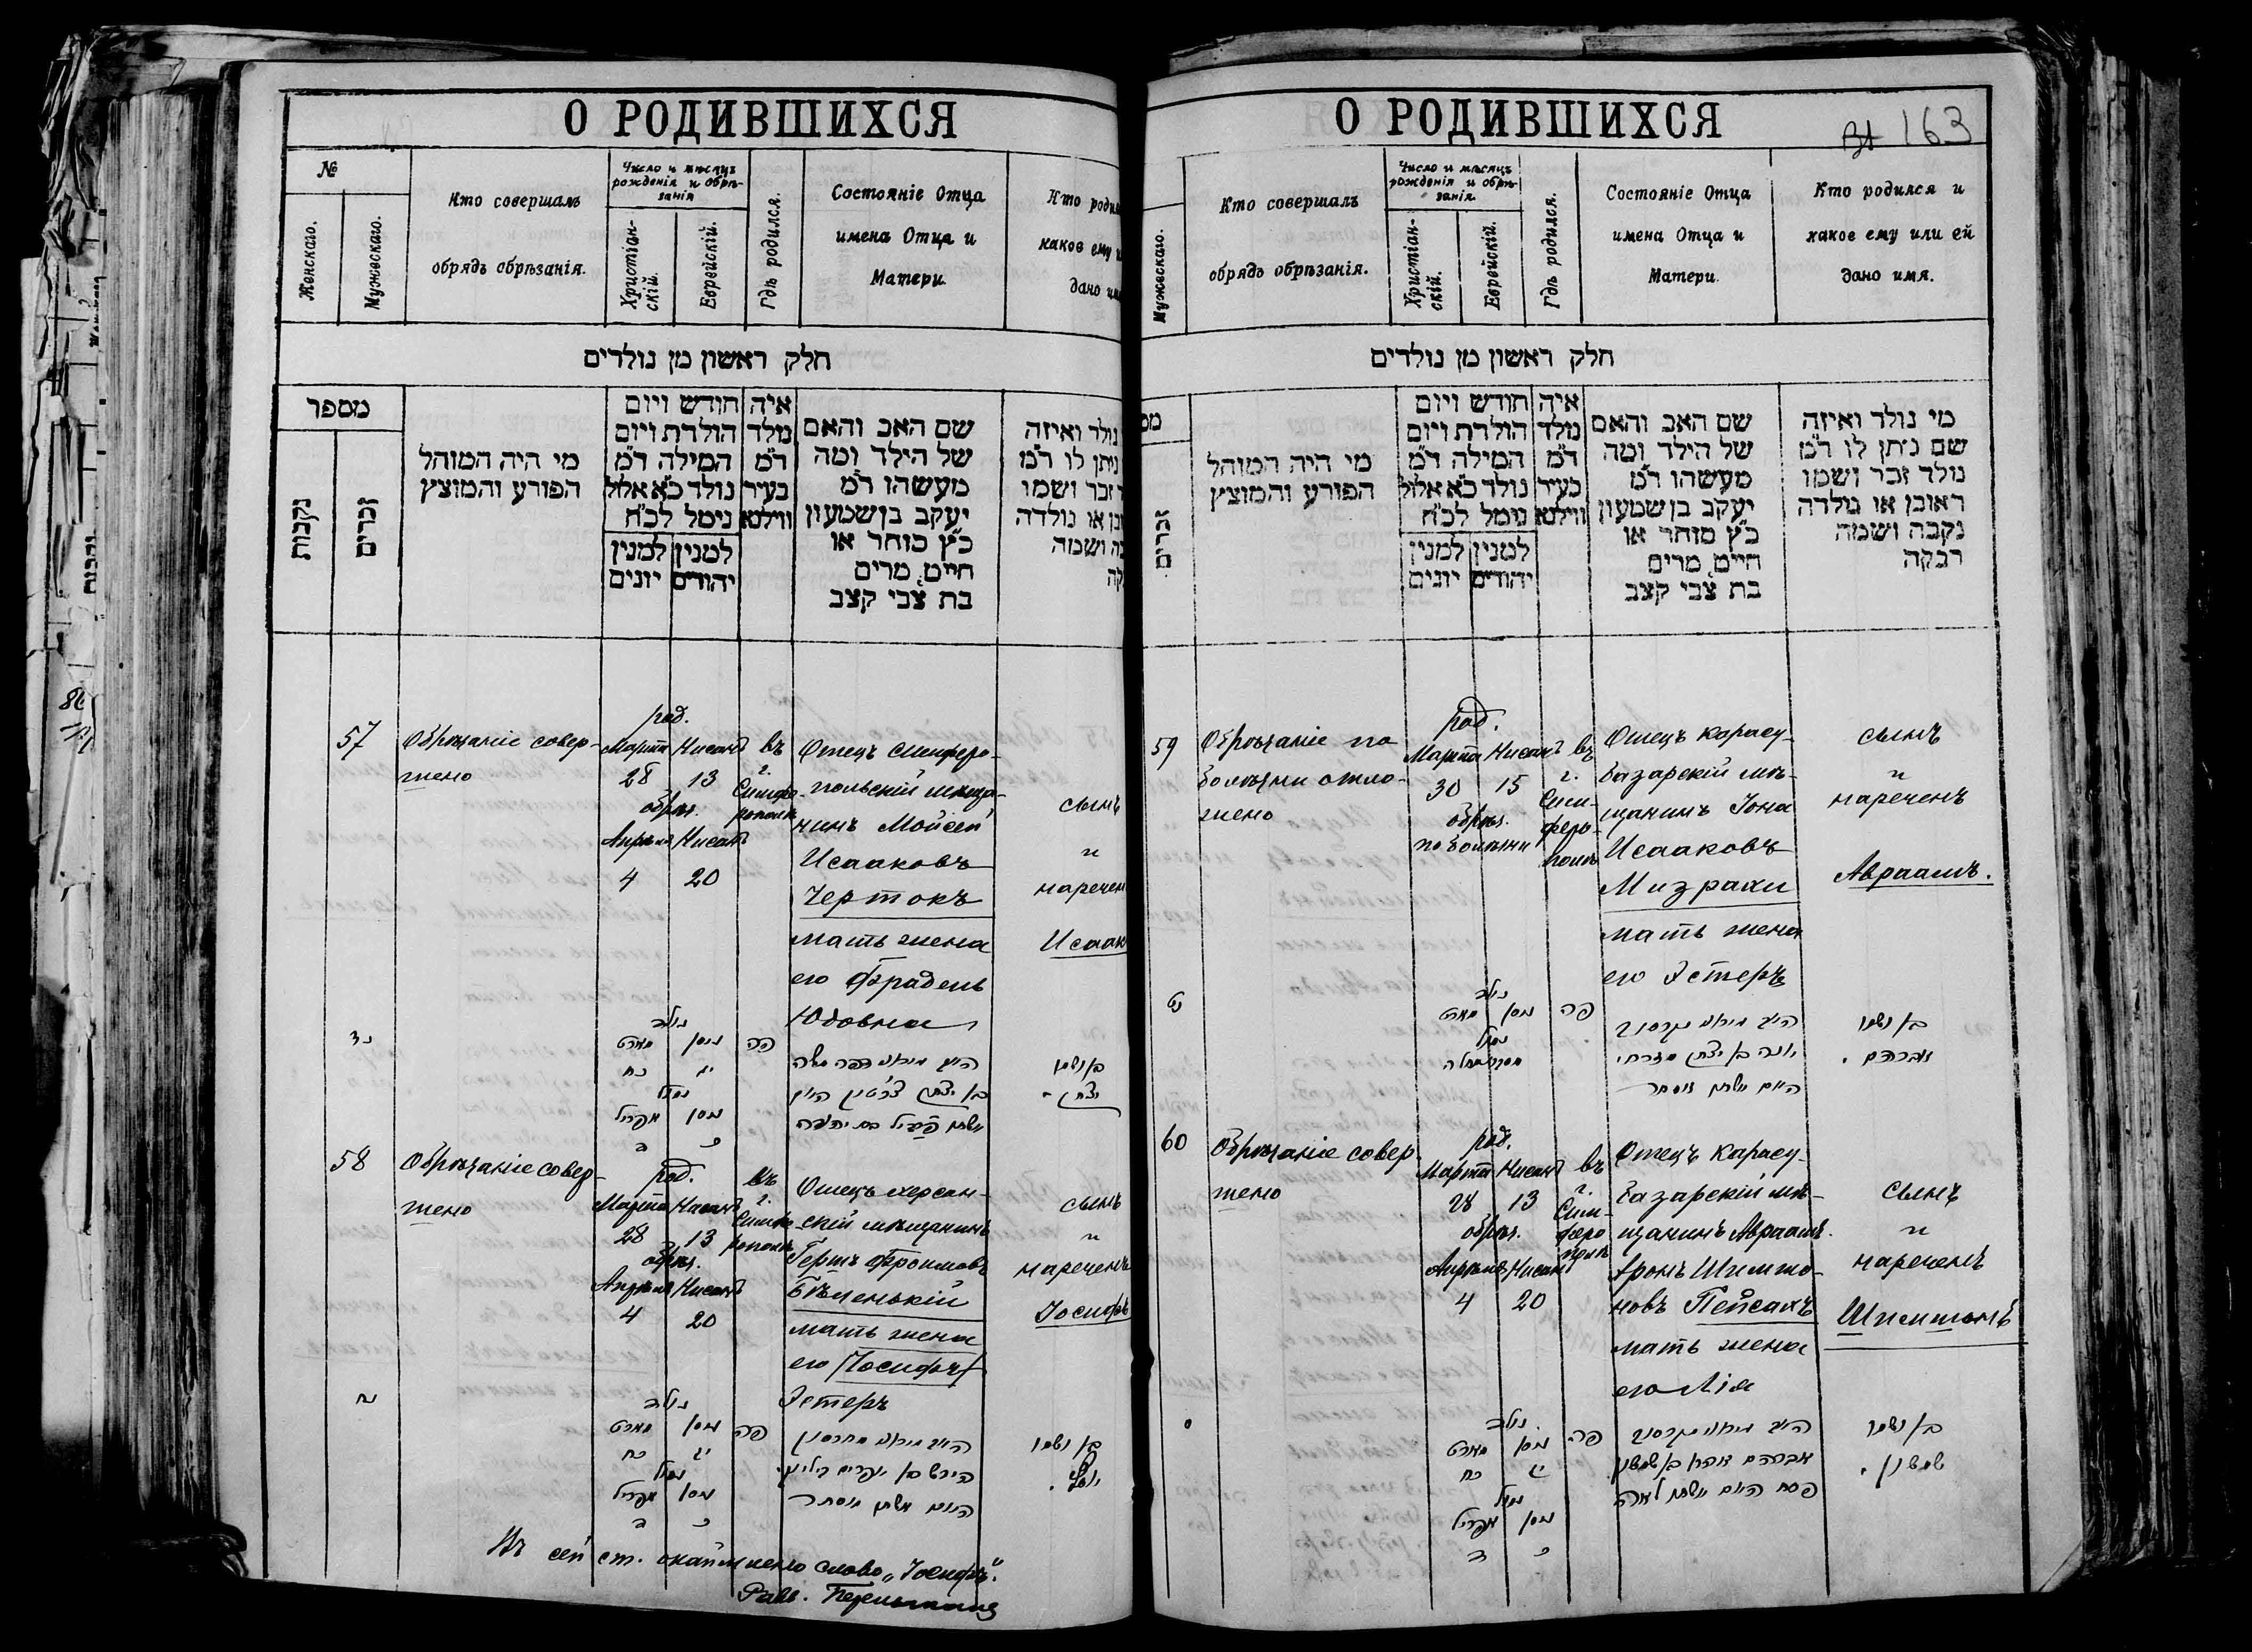 О РОДИВШИХСЯ
№
Женскаго.
Мужескаго.
Кто совершалъ
обрядъ обрѣзанія.
Число и мѣсяцъ
рожденія и обрѣ-
занія
Христіан-
скій.
Еврейскій.
Гдѣ родился.
Состояніе Отца
имена Отца и
Матери.
Кто роди
какое ему и
дано им
חלק ראשון מן נולדים
מספר
נקבות
זכרים
מי היה המוהל
הפורע והמוצץ
חודש ויום
הולדת ויום
המילה ד״מ
נולד כ״א אלול
נימל לכ״ח
למנין למנין
יהודים יונים
איה
נולד
ד״מ
בעיר
ווילנא
שם האב והאם
של הילד ומה
מעשהו ד״מ
יעקב בן שמעון
כ״ץ סוחר או
חייט, מרים
בת צבי קצב
נולד ואיזה
ניתן לו ד״מ
זכר ושמו
ובן או נולדה
בה ושמה
קה
57
Обрѣзаніе совер-
шено
род.
Марта Нисанъ
28 13
обрѣз.
Апрѣля Нисанъ
4 20
въ
г.
Симфе-
рополѣ
Отецъ Симферо-
польскій мѣща-
нинъ Мойсей
Исааковъ
Чертокъ
мать жена
его Фрадель
Юдовна
сынъ
и
наречен
Исаак
נז
נולד
ניסן מארט
יג כח
נמול
ניסן אפריל
כ ד
פה
58
Обрѣзаніе совер-
шено
род.
Марта Нисанъ
28 13
обрѣз.
Апрѣля Нисанъ
4 20
въ
г.
Симфе-
рополѣ
Отецъ херсон-
скій мѣщанинъ
Гершъ Фроимовъ
Бѣленькій
мать жена
его /Іосифъ/
Эстеръ
сынъ
и
нареченъ
Іосифъ
נח
נולד
ניסן מארט
יג כח
נמול
ניסן אפריל
כ ד
פה
בן ושמו
יוסף.
Въ сей ст. окаймлено слово „Іосифъ".
Равв.
О РОДИВШИХСЯ
163
Мужескаго.
Кто совершалъ
обрядъ обрѣзанія.
Число и мѣсяцъ
рожденія и обрѣ-
занія.
Христіан-
скій.
Еврейскій.
Гдѣ родился.
Состояніе Отца
имена Отца и
Матери.
Кто родился и
какое ему или ей
дано имя.
חלק ראשון מן נולדים
מס
זכרים
מי היה המוהל
הפורע והמוצץ
חודש ויום
הולדת ויום
המילה ד״מ
נולד כ״א אלול
נימל לכ״ח
למנין למנין
יהודים יונים
איה
נולד
ד״מ
בעיר
ווילנא
שם האב והאם
של הילד ומה
מעשהו ד״מ
יעקב בן שמעון
כ״ץ סוחר או
חייט, מרים
בת צבי קצב
מי נולד ואיזה
שם ניתן לו ד״מ
נולד זכר ושמו
ראובן או נולדה
נקבה ושמה
רבקה
59
Обрѣзаніе по
болѣзни отло-
жено
род.
Марта Нисанъ
30 15
обрѣз.
по болѣзни
въ
г.
Сим-
феро-
полѣ
Отецъ Карасу-
базарскій мѣ-
щанинъ Іона
Исааковъ
Мизрахи
мать жена
его Эстеръ
сынъ
и
нареченъ
Авраамъ.
נט
נולד
ניסן מארט
נמול
פה
יונה בן יצחק מזרחי
היום ושמה אסתר
בן ושמו
אברהם.
60
Обрѣзаніе совер-
шено
род.
Марта Нисанъ
28 13
обрѣз.
Апрѣля Нисанъ
4 20
въ
г.
Сим-
феро-
полѣ
Отецъ Карасу-
базарскій мѣ-
щанинъ Авраамъ-
Аронъ Шимшо-
новъ Пейсахъ
мать жена
его Лія
сынъ
и
нареченъ
Шимшонъ
ס
נולד
ניסן מארט
יג כח
נמול
ניסן אפריל
כ ד
פה
אברהם אהרן בן שמשון
פסח היום ושמה לאה
בן ושמו
שמשון.